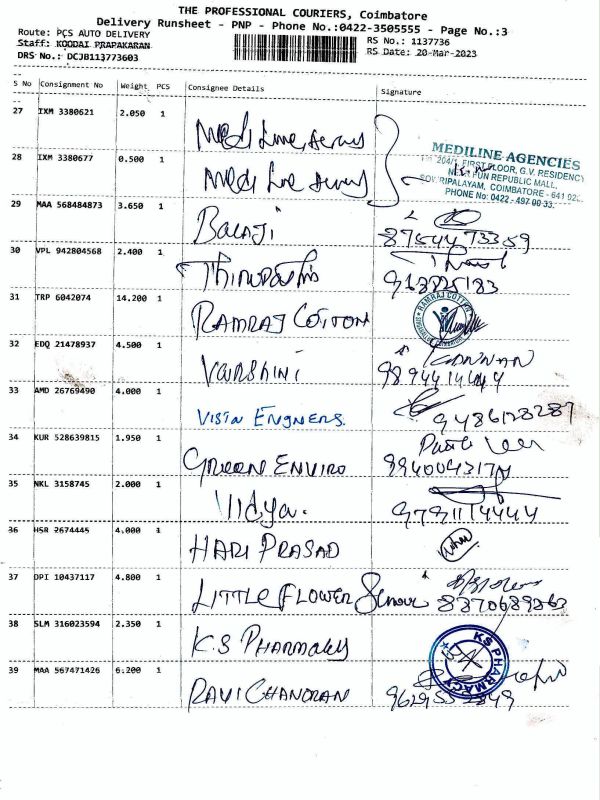 THE PROFESSIONAL COURIERS, Coimbatore
Delivery Runsheet - PNP - Phone No.:0422-3505555 - Page No.:3
Route: PCS AUTO DELIVERY RS No.: 1137736
Staff: KOODAI PRAPAKARAN RS Date: 20-Mar-2023
DRS No.: DCJB113773603
S No Consignment No Weight PCS Consignee Details Signature
27 IXM 3380621 2.050 1
28 IXM 3380677 0.500 1
MEDILINE AGENCIES
FIRST FLOOR, G.V. RESIDENCY
FUN REPUBLIC MALL,
COIMBATORE - 641
PHONE No: 0422 - 497 00 33.
29 MAA 568484873 3.650 1 BALAJI 8754473359
30 VPL 942804568 2.400 1
31 TRP 6042074 14.200 1 RAMRAJ COTTON RAMRAJ COTTON
32 EDQ 21478937 4.500 1 VARSHINI KANNAN
9894414444
33 AMD 26769490 4.000 1 VISTA ENGNERS. 9486128287
34 KUR 528639815 1.950 1 GREEN ENVIRO
35 NKL 3158745 2.000 1 Vidya. 9791114444
36 HSR 2674445 4.000 1 HARI PRASAD
37 DPI 10437117 4.800 1 LITTLE FLOWER
38 SLM 316023594 2.350 1 K.S PHARMACY KS PHARMACY
39 MAA 567471426 6.200 1 RAVICHANDRAN